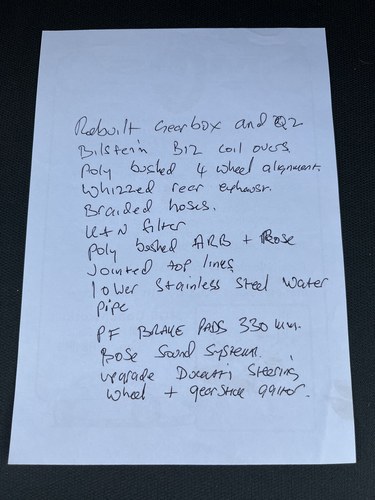 Rebuilt Gearbox and Q2
Bilstein B12 coil overs
Poly bushed 4 wheel alignment.
Whizzed rear exhaust.
Braided hoses.
K+N filter
Poly bushed ARB + Rose
Jointed top links
lower stainless steel water
pipe
PF BRAKE PADS 330 mm.
Bose Sound System.
upgrade Ducatti Steering
wheel + gearstick gaitor.